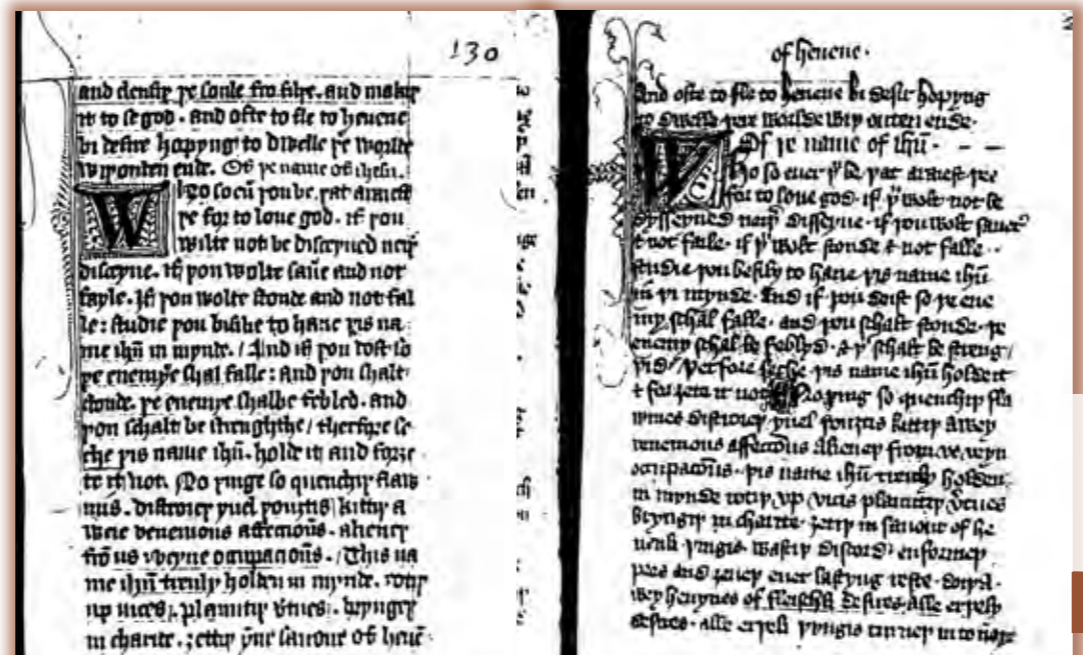 130
and clensiþ þe soule fro filþe. and makiþ
it to se god. and ofte to fle to heuene
bi desire hopyng to dwelle þe worlde
wiþouten ende. Of þe name of ihesu.
Who so eu̅ þou be. þat araiest
þe for to loue god. if þou
wilte not be disceyued neiþ
disceyue. If þou wolte saue and not
fayle. If þou wolte stonde and not fal
le: studie þou bisilie to haue þis na
me ihu̅ in mynde. / And if þou dost so
þe enemye shal falle: and þou shalt
stonde. þe enemye shalbe febled. and
þou schalt be / therfore se
che þis name ihu̅. holde it and forȝe
te it not. No þinge so quenchiþ flaw
mus. distroieþ yuel þouȝtis kittiþ a
weie venemous affeccious̅. alieneþ
fro̅ us veyne ocupacions̅. / This na
me ihu̅ treuly holden in mynde. rotiþ
up uices. plauntiþ v̅tues. bryngeþ
in charite. sauour of heue̅
of heuene.
And ofte to fle to heuene bi desir hopyng
to dwelle þere worlde wiþ outen ende.
Of þe name of ihu̅.
Who so euer þu be þat araiest þee
for to loue god. if þu wolt not be
dysseyued neiþ disseyue. if þou wolt saue
& not faile. if þu wolt stonde & not falle..
studie þou besily to haue þis name ihu̅
in þi mynde. And if þou doist so þe ene
my schal falle. and þou schalt stonde. þe
enemy schal be feblyd. & þu schalt be streng/
þid/ þerfore seche þis name ihu̅ holde it
& forȝete it not No þing so quenchiþ fla
wmes distroieþ yuel þouȝtis kittiþ awey
venemous affeccou̅s alieneþ from veyn
ocupacou̅s. þis name ihu̅ treuly holden
in mynde rotiþ vp vicis plauntiþ v̅tues
bryngiþ in charite. ȝettiþ in sauour of he
uenli þingis. wastiþ discord. enformeþ
pees and ȝeueþ euer lastyng reste. doiþ a
wey heuynes of fleischli desires. alle erþely
desires. alle erþeli þyngis turneþ in to